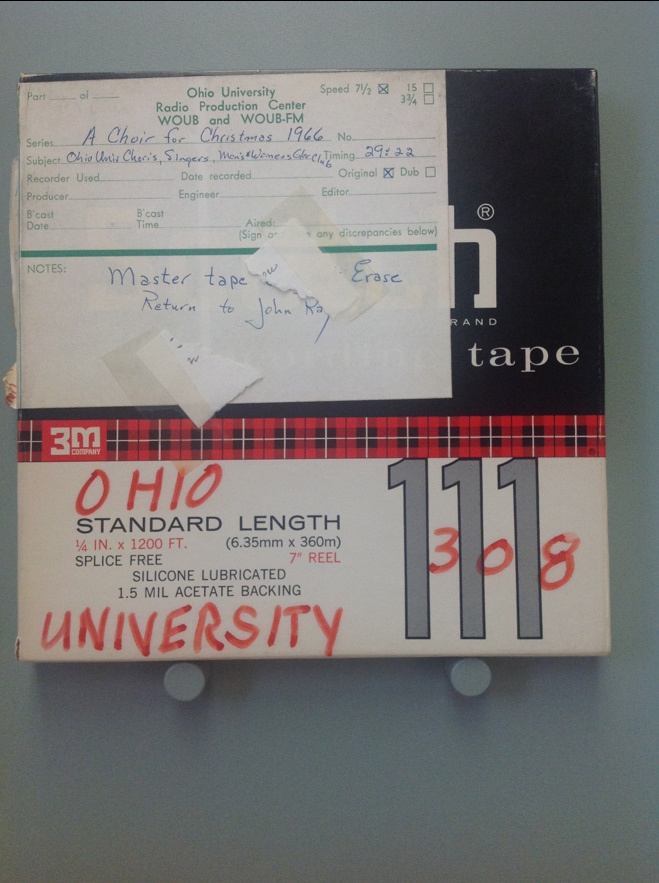 Part of
Ohio University
Radio Production Center
WOUB and WOUB-FM
Speed 7½ ☒ 15 ☐
3¾ ☐
Series A Choir for Christmas 1966 No.
Subject Ohio Univ Choris, Singers, Men's & Womens Glee Club Timing 29:22
Recorder Used Date recorded Original ☒ Dub ☐
Producer Engineer Editor
B'cast Date B'cast Time Aired:
(Sign any discrepancies below)
NOTES:
Master tape Erase
Return to John Ray
h®
RAND
tape
3M
COMPANY
OHIO
STANDARD LENGTH
¼ IN. x 1200 FT. (6.35mm x 360m)
SPLICE FREE 7" REEL
SILICONE LUBRICATED
1.5 MIL ACETATE BACKING
UNIVERSITY
111
308